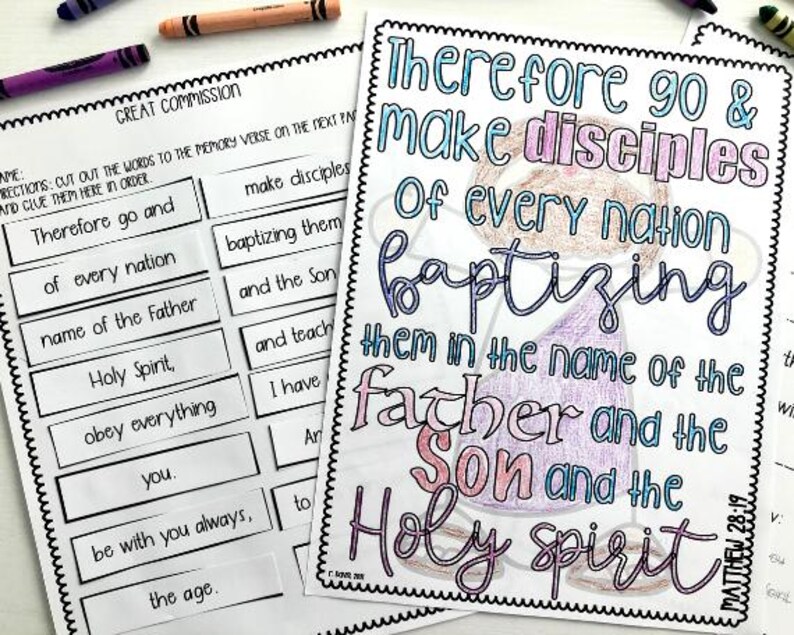 GREAT COMMISSION
NAME:
DIRECTIONS: CUT OUT THE WORDS TO THE MEMORY VERSE ON THE NEXT
AND GLUE THEM HERE IN ORDER.
Therefore go and
make disciples
of every nation
baptizing them
name of the Father
and the Son
Holy Spirit,
obey everything
I have
you.
be with you always,
to
the age.
Therefore go &
make disciples
of every nation
baptizing
them in the name of the
father and the
Son and the
Holy spirit
MATTHEW 28:19